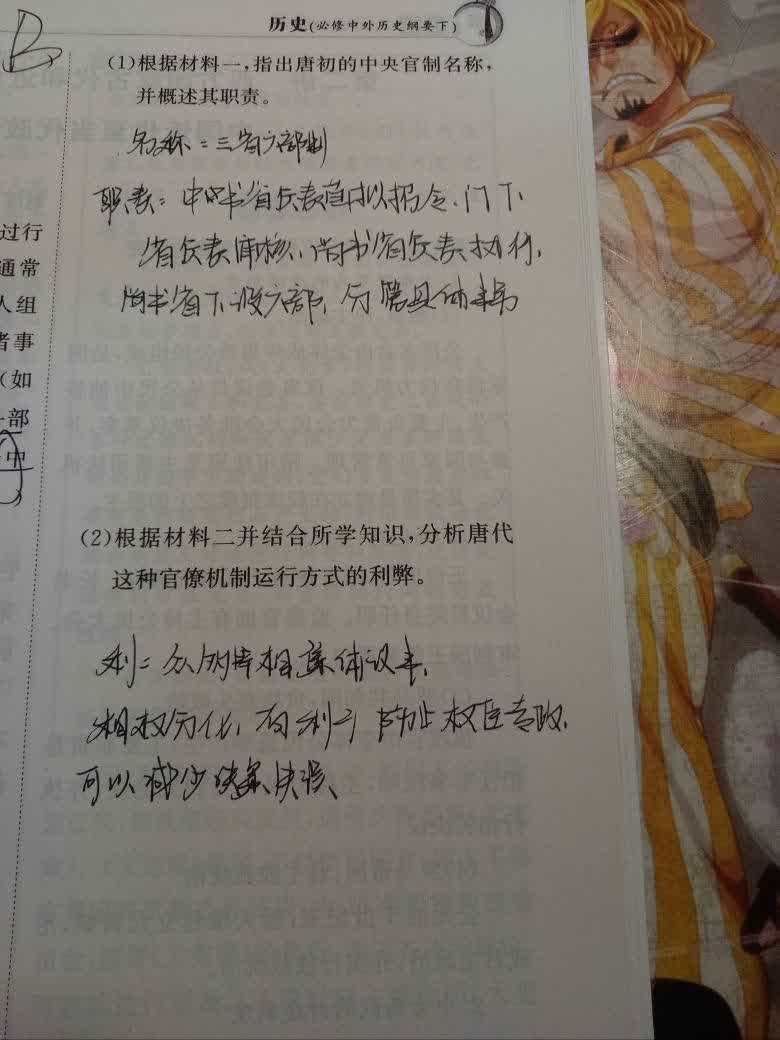 历史(必修中外历史纲要下)
B
(1)根据材料一,指出唐初的中央官制名称,
并概述其职责。
名称:三省六部制
职责:中书省负责草拟招令、门下
省负责审核、尚书省负责执行,
尚书省下设六部,分管具体事务
过行
通常
人组
者事
(如
部
中
(2)根据材料二并结合所学知识,分析唐代
这种官僚机制运行方式的利弊。
利:众多宰相集体议事,
相权分化,有利于防止权臣专政,
可以减少决策失误、